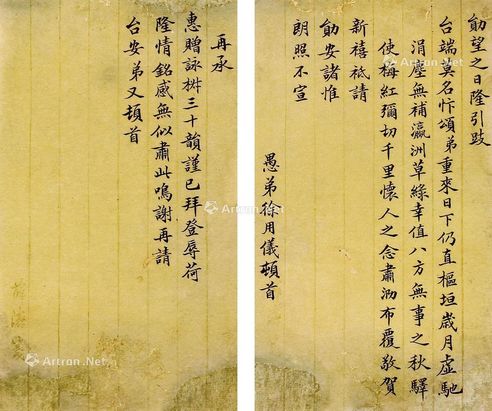 勛望之日隆引跂
台端莫名忭頌弟重來日下仍直樞垣歲月虛馳
涓塵無補瀛洲草綠幸值八方無事之秋驛
使梅紅彌切千里懷人之念肅泐布覆敬賀
新禧祗請
勛安諸惟
朗照不宣
愚弟徐用儀頓首
再承
惠贈詠樹三十韻謹已拜登辱荷
隆情銘感無似肅此鳴謝再請
台安弟又頓首
Artron.Net
Artron.Net
Artron.Net
Artron.Net